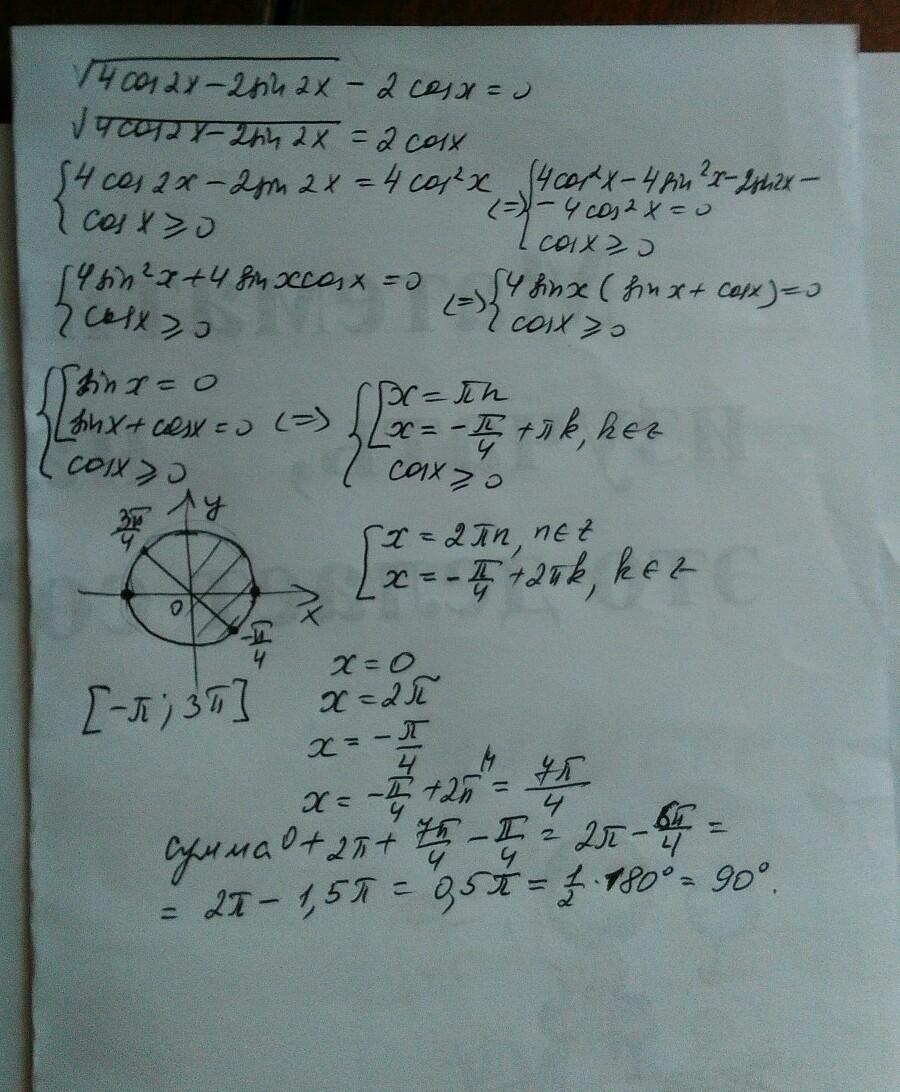 √4cos2x − 2sin2x − 2cosx = 0
√4cos2x − 2sin2x = 2cosx
{4cos2x − 2sin2x = 4cos²x
cosx ≥ 0
<=> {4cos²x − 4sin²x − 2sin2x −
− 4cos²x = 0
cosx ≥ 0
{4sin²x + 4sinxcosx = 0
cosx ≥ 0
<=> {4sinx(sinx + cosx) = 0
cosx ≥ 0
{[sinx = 0
sinx + cosx = 0
cosx ≥ 0
<=> {[x = πn
x = −π/4 + πk, k∈z
cosx ≥ 0
y
3π/4
0
x
−π/4
[x = 2πn, n∈z
x = −π/4 + 2πk, k∈z
[−π; 3π]
x = 0
x = 2π
x = −π/4
x = −π/4 + 2π = 7π/4
сумма 0 + 2π + 7π/4 − π/4 = 2π − 6π/4 =
= 2π − 1,5π = 0,5π = 1/2 · 180° = 90°.